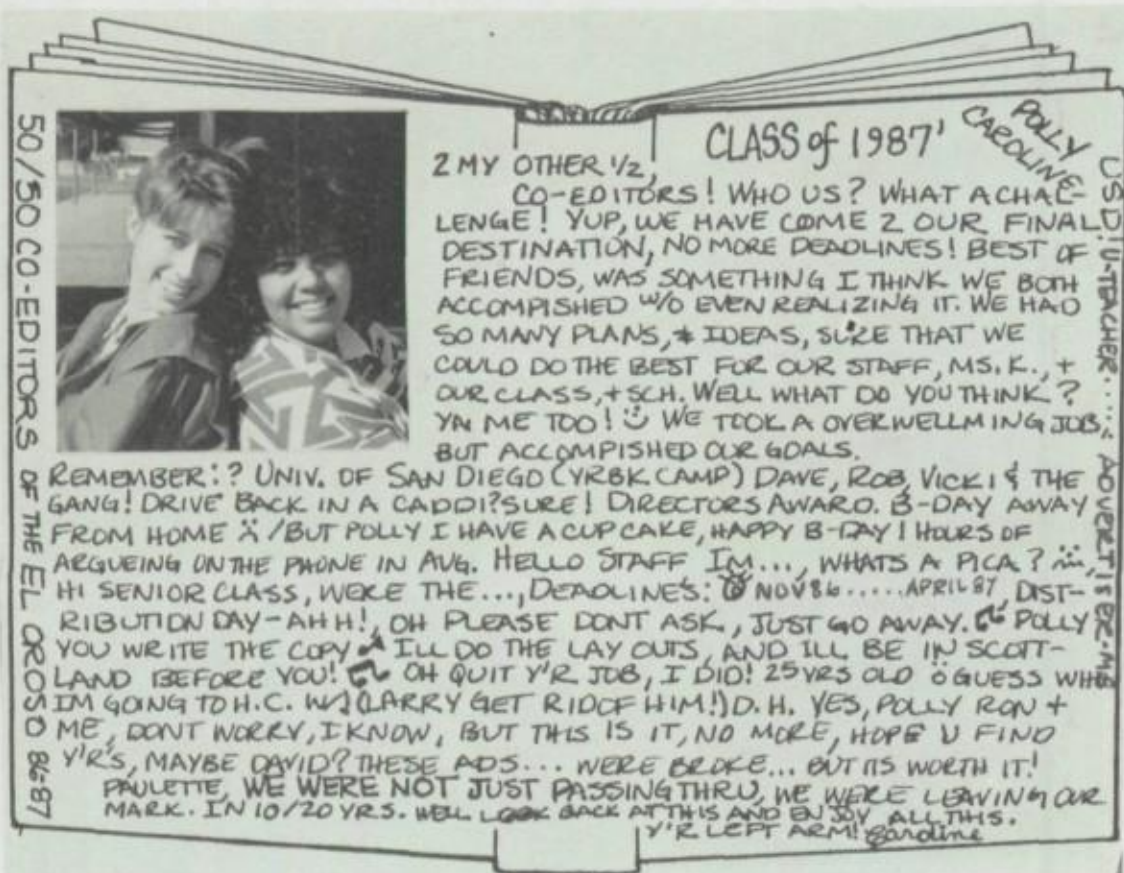 CLASS of 1987'
POLLY
CAROLINE
2 MY OTHER 1/2,
CO-EDITORS! WHO US? WHAT A CHAL-
LENGE! YUP, WE HAVE COME 2 OUR FINAL
DESTINATION, NO MORE DEADLINES! BEST OF
FRIENDS, WAS SOMETHING I THINK WE BOTH
ACCOMPISHED W/O EVEN REALIZING IT. WE HAD
SO MANY PLANS, & IDEAS, SURE THAT WE
COULD DO THE BEST FOR OUR STAFF, MS. K., +
OUR CLASS, + SCH. WELL WHAT DO YOU THINK?
YA ME TOO! WE TOOK A OVERWELLMING JOB,
BUT ACCOMPISHED OUR GOALS.
REMEMBER:? UNIV. OF SAN DIEGO (YRBK CAMP) DAVE, ROB, VICKI & THE
GANG! DRIVE BACK IN A CADDI? SURE! DIRECTORS AWARD. B-DAY AWAY
FROM HOME / BUT POLLY I HAVE A CUP CAKE, HAPPY B-DAY! HOURS OF
ARGUEING ON THE PHONE IN AUG. HELLO STAFF IM..., WHATS A PICA?
HI SENIOR CLASS, WERE THE..., DEADLINES: NOV 86 ..... APRIL 87, DIST-
RIBUTION DAY-AHH!, OH PLEASE DONT ASK, JUST GO AWAY. POLLY
YOU WRITE THE COPY ILL DO THE LAY OUTS, AND ILL BE IN SCOTT-
LAND BEFORE YOU! OH QUIT Y'R JOB, I DID! 25 YRS OLD GUESS WHO
IM GOING TO H.C. W/ (LARRY GET RID OF HIM!) D.H. YES, POLLY RON +
ME, DONT WORRY, I KNOW, BUT THIS IS IT, NO MORE, HOPE U FIND
Y'R'S, MAYBE DAVID? THESE ADS... WERE BROKE... BUT ITS WORTH IT!
PAULETTE, WE WERE NOT JUST PASSING THRU, WE WERE LEAVING OUR
MARK. IN 10/20 YRS. WELL LOOK BACK AT THIS AND ENJOY ALL THIS.
Y'R LEFT ARM! Caroline
50/50 CO-EDITORS OF THE EL OROSO 86-87
USD! U-TEACHER..... ADVERTISER-ME